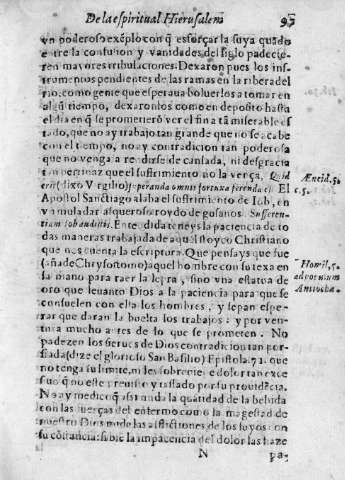 De la espiritual Hierusalem 97
vn poderoso exẽplo con q̃ esforçar la suya quãdo
entre la confusion y vanidades del siglo padecie-
ren mayores tribulaciones. Dexaron pues los ins-
trumentos pendientes de las ramas en la ribera del
rio, como gente que esperaua boluerlos a tomar en
algũ tiempo, dexaronlos como en deposito hasta
el dia en q̃ se prometierõ ver el fin a tã miserable es
tado, que no ay trabajo tan grande que no se acabe
con el tiempo, no ay contradicion tan poderosa
que no venga a rendirse de cansada, ni desgracia
tan pertinaz que el sufrimiento no la vença. Quid
erit (dixo Virgilio) superanda omnis fortuna ferendo est. El
Æneid. 5.
Apostol Sanctiago alaba el sufrimiento de Iob, en
vn muladar asqueroso roydo de gusanos. Sufferen-
tiam Iob audistis. Entẽdida teneys la paciencia de to
das maneras trabajada de aquel stoyco Christiano
que nos cuenta la escriptura. Que pensays que fue
(añade Chrysostomo) aquel hombre con su texa en
Homil. 5.
ad populum
Antioche.
la mano para raer la lepra, sino vna estatua de
oro que leuantò Dios a la paciencia para que se
consuelen con ella los hombres, y sepan espe-
rar que daran la buelta los trabajos: y por ven-
tura mucho antes de lo que se prometen. No
padezen los sieruos de Dios contradicion tan por-
fiada (dize el glorioso San Basilio) Epistola 71. que
no tenga su limite, ni les sobreuiene dolor tan exce
suo q̃ no este preuisto y tassado por su prouidẽcia.
No ay medico q̃ assi mida la quantidad de la bebida
con las fuerças del enfermo como la magestad de
nuestro Dios mide las aflictiones de los suyos con
su cõstancia: sibie la impaciencia del dolor las haze
N pa-